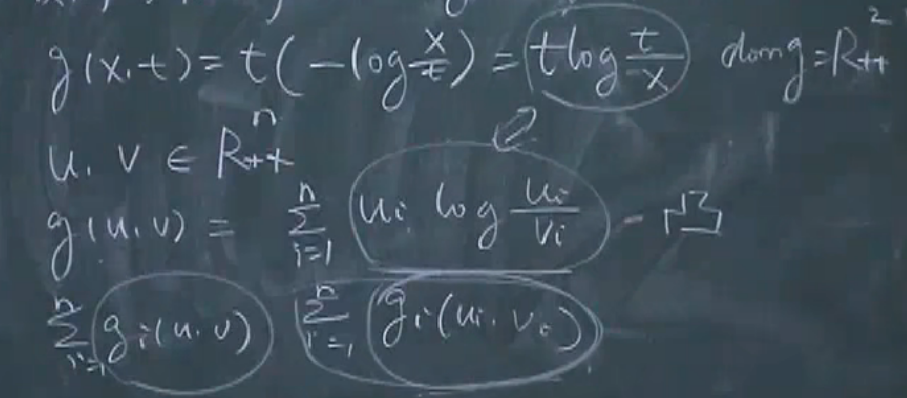 g(x,t) = t(-log x/t) = t log t/x dom g = R²₊₊
u, v ∈ Rⁿ₊₊
g(u,v) = ∑ᵢ₌₁ⁿ uᵢ log uᵢ/vᵢ - 凸
∑ᵢ₌₁ⁿ gᵢ(u,v) ∑ᵢ₌₁ⁿ gᵢ(uᵢ,vᵢ)